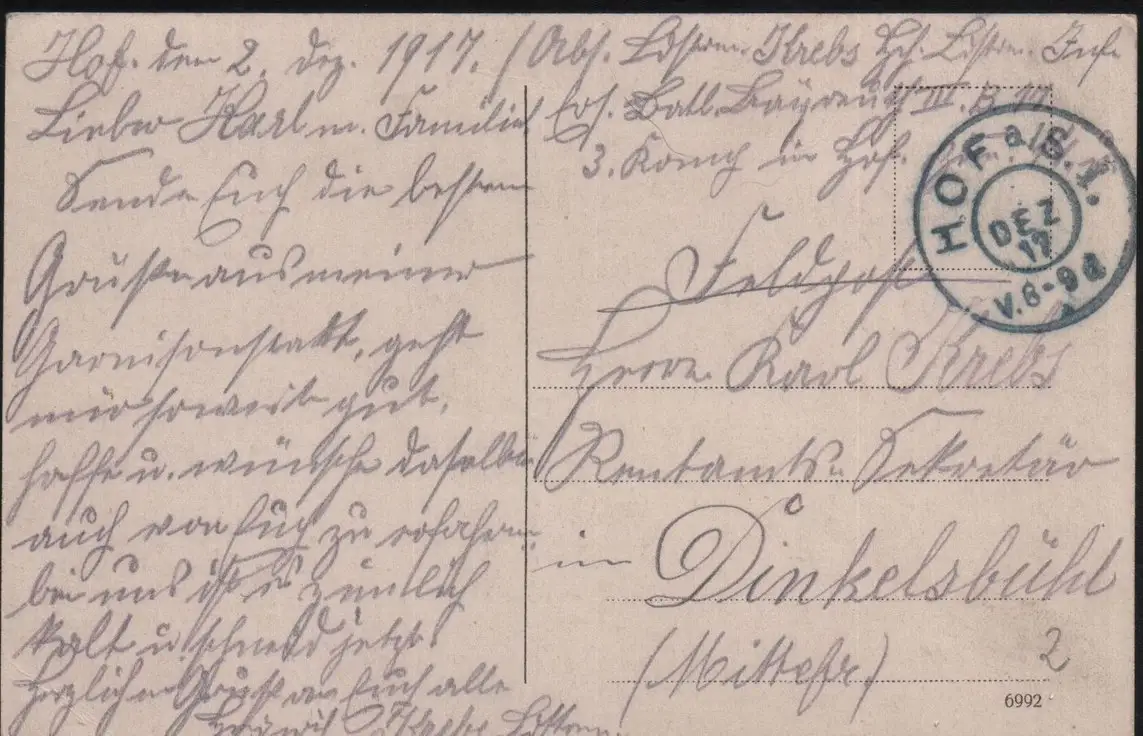 Hof. den 2. Dez. 1917. (Abs. Ldstrm. Krebs Ldstrm. Inf.
Ers. Batl. Bayreuth III. B.
3. Komp in Hof.
Lieber Karl m. Familie!
Sende Euch die besten
Grüße aus meiner
Garnisonstatt, geht
mir soweit gut,
hoffe u. wünsche dasselbe
auch von Euch zu erfahren,
bei uns ist es ziemlich
kalt u schneid jetzt.
Herzlichen Gruß an Euch alle
Krebs Ldstrm.
HOF a/S. 1.
DEZ
17
V. 8-9
Feldpost
Herrn Karl Krebs
Rentamts-Sekretär
in Dinkelsbühl
(Mittelfr)
2
6992